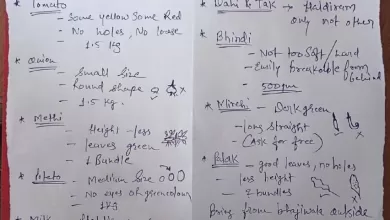 * Tomato
- Some yellow Some Red
- No holes, No louse
- 1.5 kg
* Onion
- Small Size
- Round shape
- 1.5 kg.
* Methi
- Height - less
- leaves green
- 1 Bundle
* Potato
- Medium Size
- No eyes of greencolour
- 1 kg
* Dahi & Tak → Haldiram
only not other
* Bhindi
- Not too Soft / Hard
- Easily breakable from
behind
- 500gm
* Mirchi - Dark green
- long straight
- (Ask for free)
* Palak - good leaves, no holes
- less height
- 2 bundles
Bring from bhajiwala outside